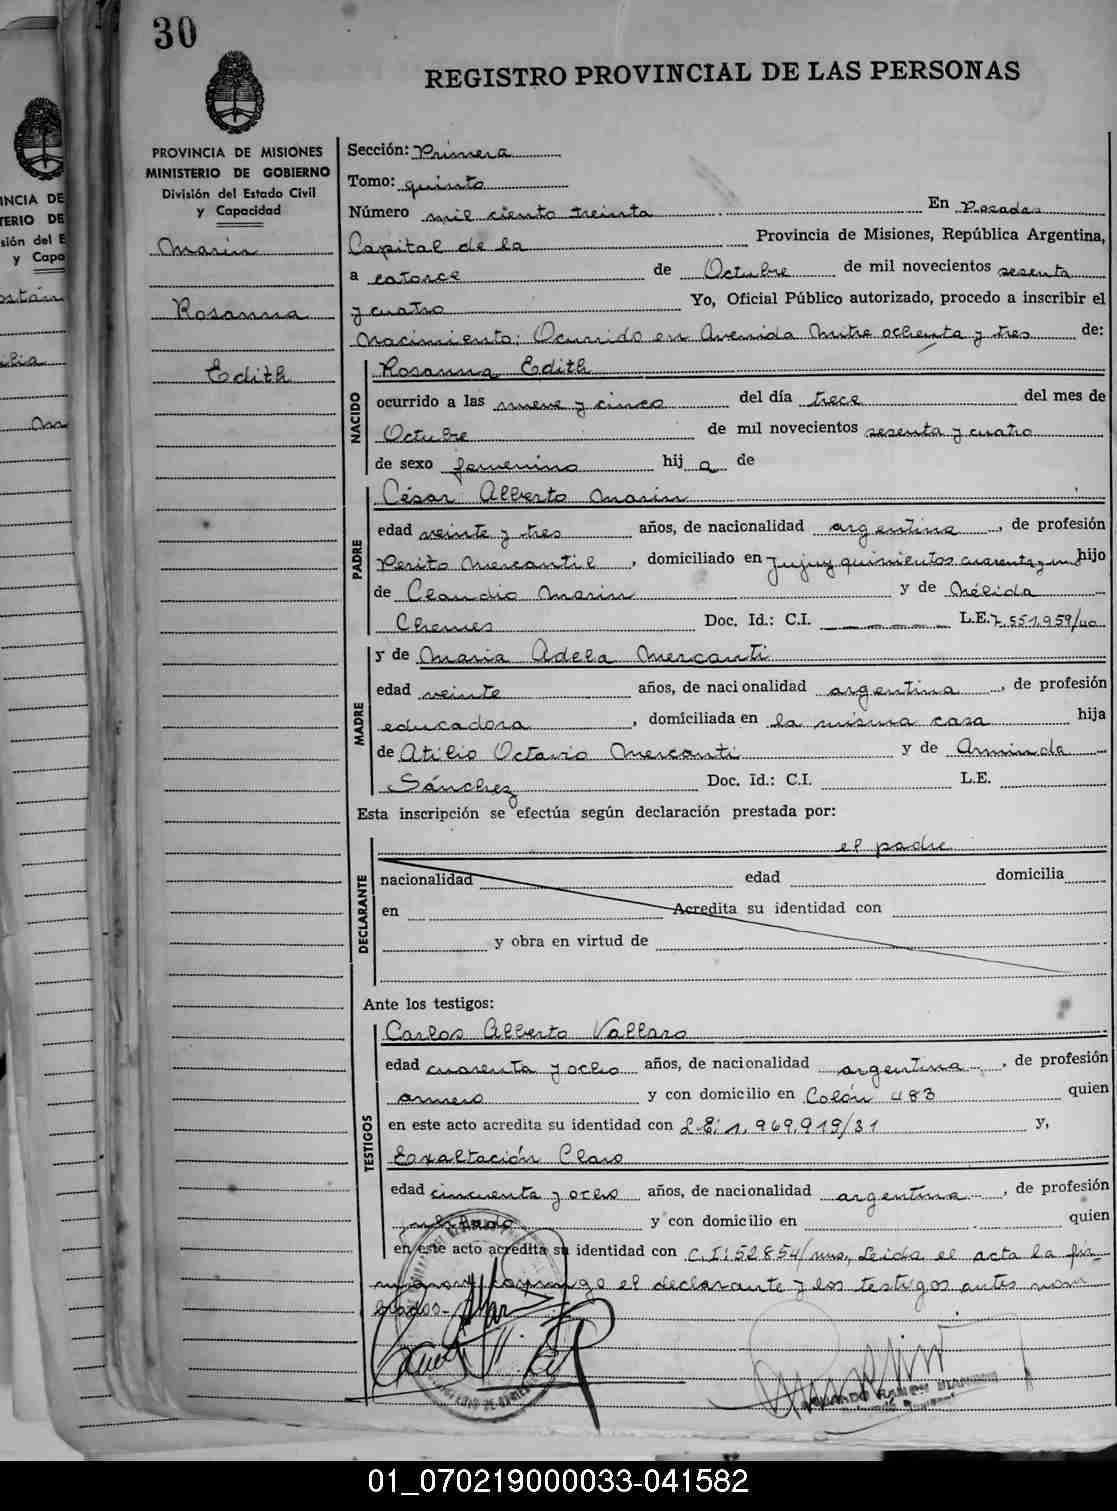 30
REGISTRO PROVINCIAL DE LAS PERSONAS
PROVINCIA DE MISIONES
MINISTERIO DE GOBIERNO
División del Estado Civil
y Capacidad
Marin
Rosanna
Edith
Sección: Primera
Tomo: quinto
Número mil ciento treinta En Posadas
Capital de la Provincia de Misiones, República Argentina,
a catorce de Octubre de mil novecientos sesenta
y cuatro Yo, Oficial Público autorizado, procedo a inscribir el
Nacimiento: Ocurrido en Avenida Mitre ochenta y tres de:
NACIDO
Rosanna Edith
ocurrido a las nueve y cinco del día trece del mes de
Octubre de mil novecientos sesenta y cuatro
de sexo femenino hij a de
PADRE
César Alberto Marin
edad veinte y tres años, de nacionalidad argentina, de profesión
Perito Mercantil, domiciliado en Jujuy quinientos cuarenta y uno hijo
de Claudio Marin y de Nélida
Chemes Doc. Id.: C.I. L.E. 7.551.959/uo
MADRE
y de Maria Adela Mercanti
edad veinte años, de nacionalidad argentina, de profesión
educadora, domiciliada en la misma casa hija
de Atilio Octavio Mercanti y de Arminda
Sánchez Doc. Id.: C.I. L.E.
Esta inscripción se efectúa según declaración prestada por:
el padre
DECLARANTE
nacionalidad edad domicilia
en Acredita su identidad con
y obra en virtud de
Ante los testigos:
TESTIGOS
Carlos Alberto Vallaro
edad cuarenta y ocho años, de nacionalidad argentina, de profesión
armero y con domicilio en Colón 483 quien
en este acto acredita su identidad con L.E: 1.969.919/31 y,
Exaltación Claro
edad cincuenta y ocho años, de nacionalidad argentina, de profesión
jubilado y con domicilio en quien
en este acto acredita su identidad con C.I: 52854/mns, Leida el acta la fir-
man conmigo el declarante y los testigos antes nom
brados-
01_070219000033-041582